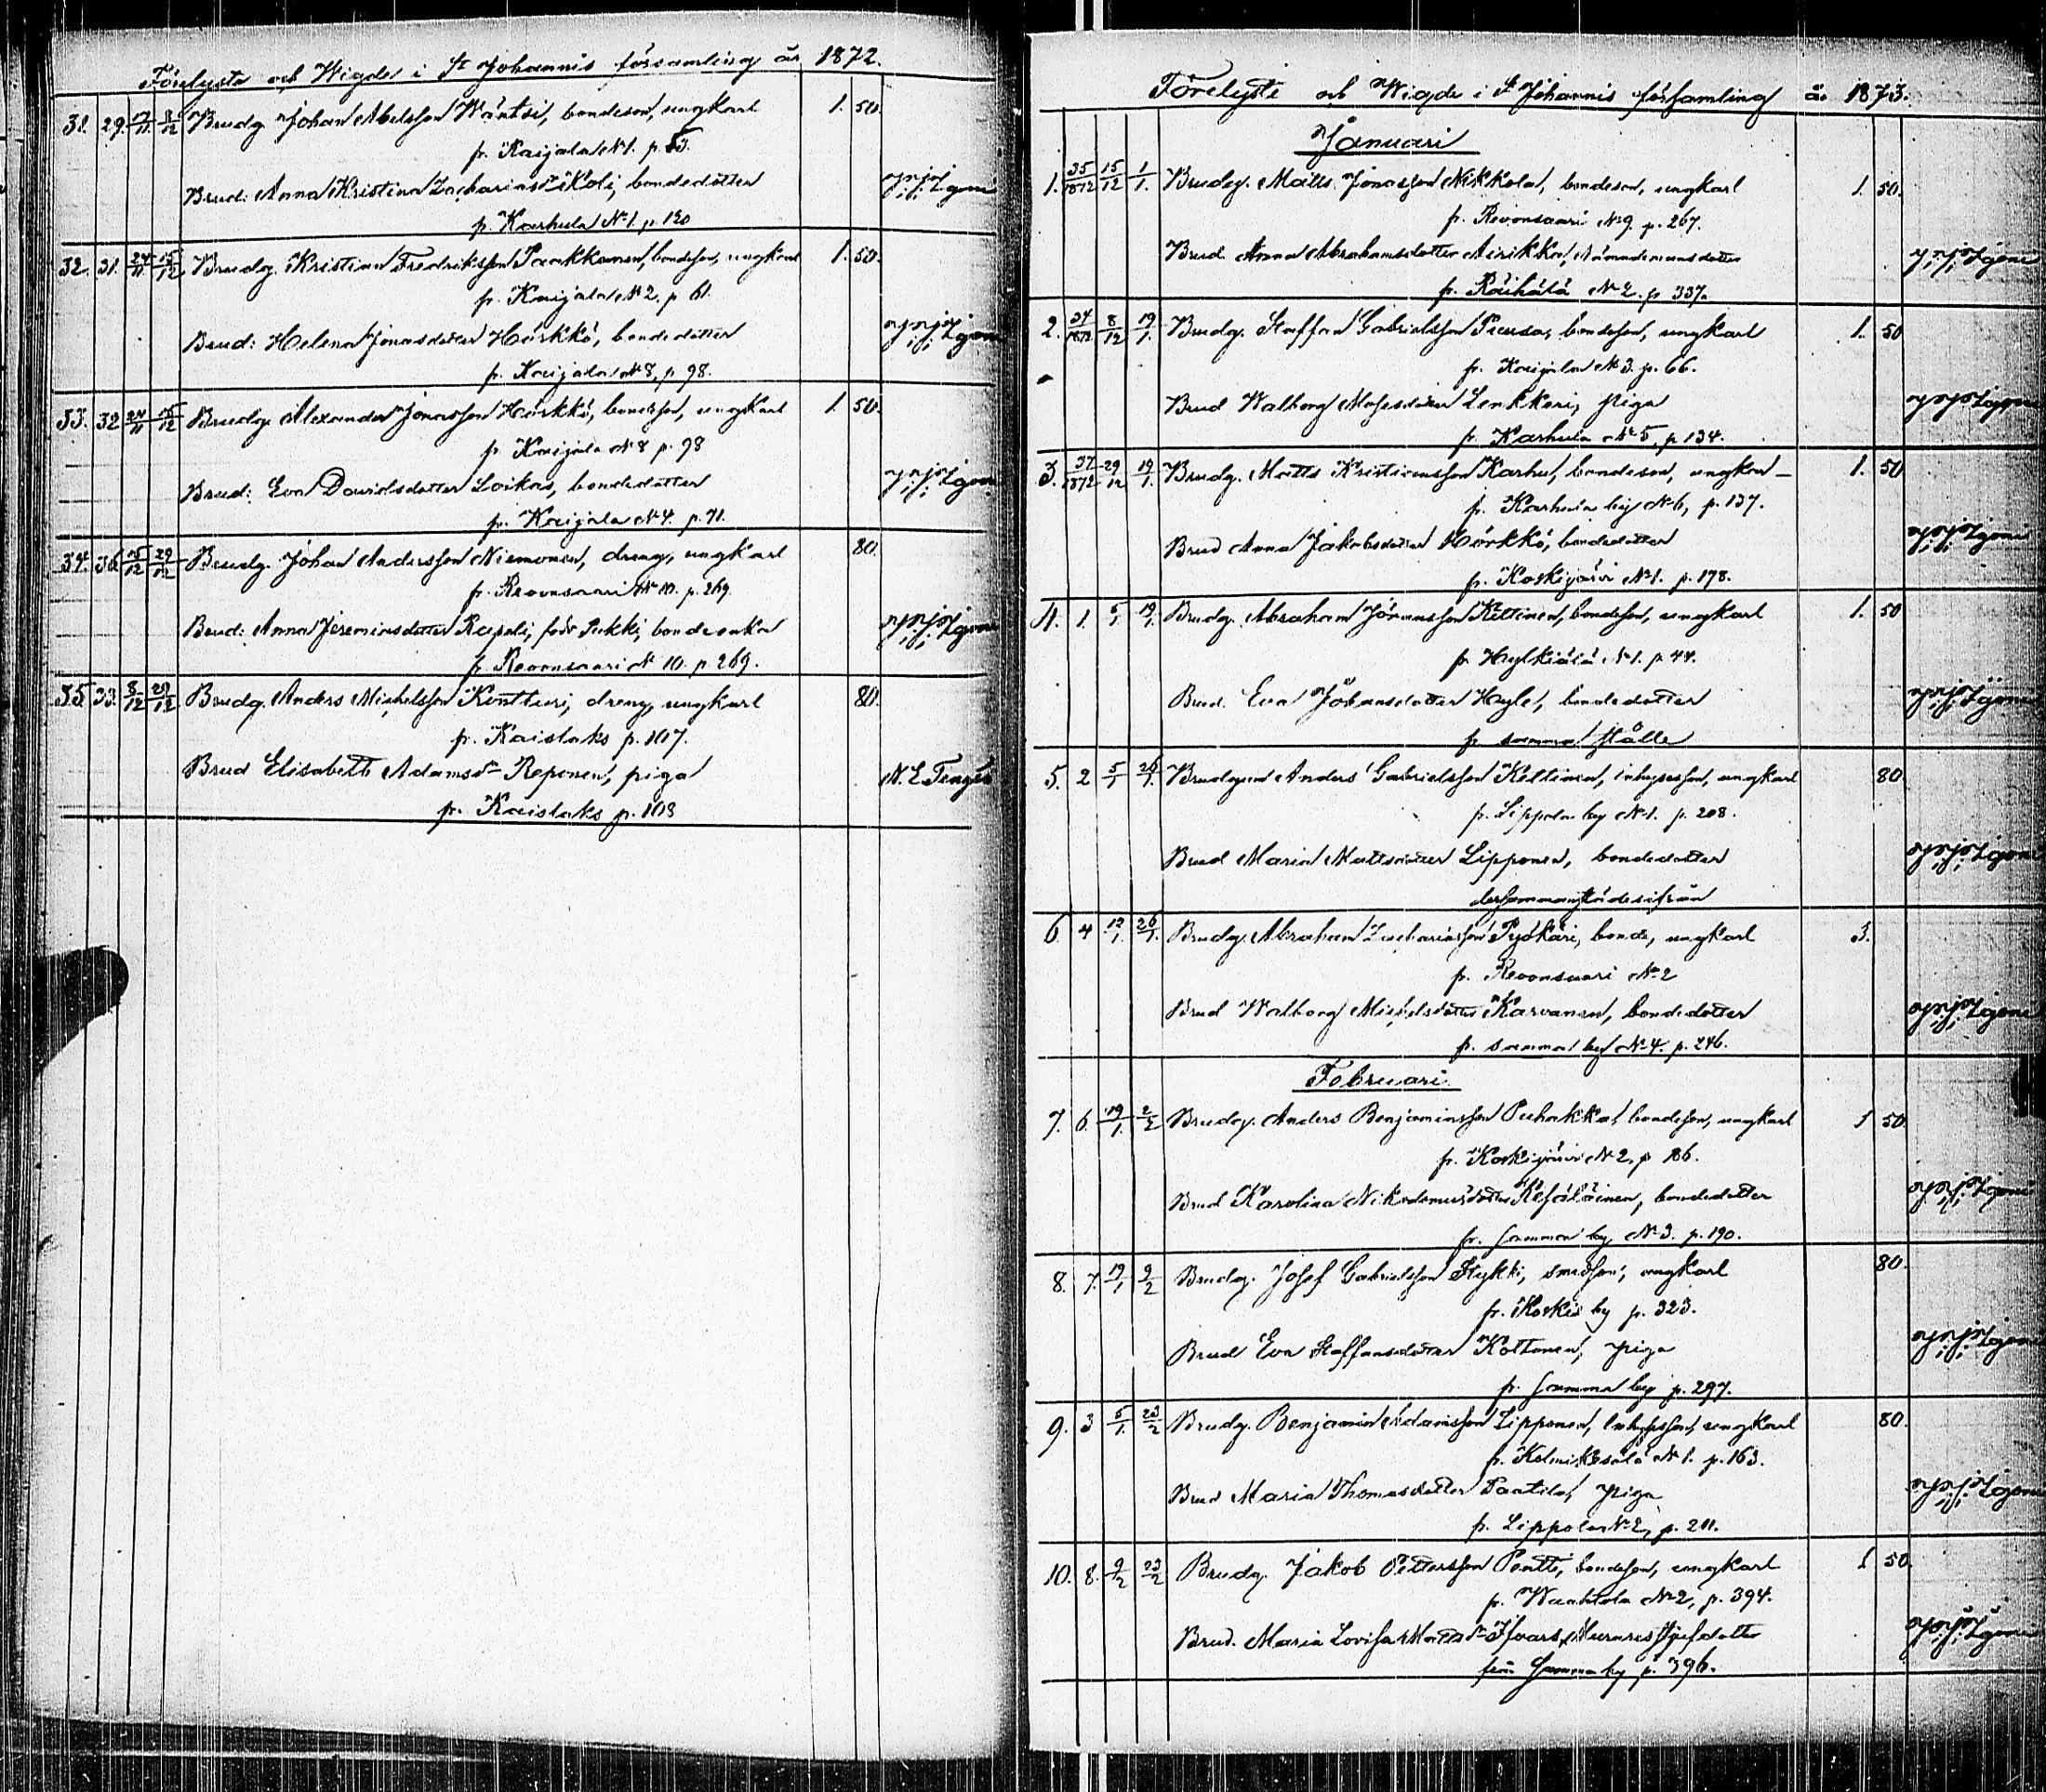 Förelyste och Wigde i St Johannis församling år 1872.
31. 29. 17/11 8/12 Brudg. Johan Abelsson Wäntsi, bondeson, ungkarl 1. 50.
fr. Kaijala N 1. p. 53.
Brud: Anna Kristina Zachariasdr Koli, bondedotter
fr. Karhula N 1. p. 120
32. 31. 24/11 15/12 Brudg. Kristian Fredriksson Paakkonen, bondeson, ungkarl 1. 50.
fr. Kaijala N 2, p 61.
Brud: Helena Jonasdotter Härkkö, bondedotter
fr. Kaijala N 8, p 98.
33. 32 24/11 15/12 Brudg. Alexander Jonasson Härkkö, bondeson, ungkarl 1. 50.
fr. Kaijala N 8 p. 98
Brud: Eva Davidsdotter Loikas, bondedotter
fr. Kaijala N 4. p. 71.
34. 36 15/12 29/12 Brudg. Johan Andersson Niemonen, dreng, ungkarl 80.
fr. Revonsaari N 10. p. 269.
Brud: Anna Jeremiasdotter Raepoli, född Pukki, bondeenka
fr. Revonsaari N 10. p. 269.
35. 33. 8/12 29/12 Brudg. Anders Michelsson Kontturi, dreng, ungkarl 80.
fr. Kaislaks p. 107.
Brud Elisabeth Adamsdr Reponen, piga N. L. Tengén
fr. Kaislaks p. 108
Förelyste och Wigde i St Johannis församling år 1873.
Januari
1. 35/1872 15/12 1/1. Brudg. Matts Jonasson Nikkola, bondeson, ungkarl 1. 50.
fr. Revonsaari N 9. p. 267.
Brud Anna Abrahamsdotter Airikka, Nämndemansdotter
fr. Räihälä N 2. p. 337.
2. 34/1872 8/12 19/1. Brudg. Staffan Gabrielsson Peusa, bondeson, ungkarl 1. 50
fr. Kaijala N 3. p. 66.
Brud Walborg Mosesdotter Lenkkeri, piga
fr. Karhula N 5, p 134.
3. 37/1872 29/12 19/1. Brudg. Matts Kristiansson Karhu, bondeson, ungkarl 1. 50
fr. Karhula by N 6, p. 137.
Brud Anna Jakobsdotter Härkkö, bondedotter
fr. Koskijärvi N 1. p. 178.
4. 1. 5/1 19/1. Brudg. Abraham Jöransson Kettinen, bondeson, ungkarl 1. 50
fr. Hylkiälä N 1. p. 44.
Brud. Eva Johansdotter Hyle, bondedotter
fr. samma ställe
5. 2 5/1 26/1. Brudgum Anders Gabrielsson Kettinen, inhysesson, ungkarl 80
fr. Lippola by N 1. p. 208.
Brud Maria Mattsdotter Lipponen, bondedotter
dersammastädesifrån
6. 4 12/1. 26/1. Brudg. Abraham Zachariasson Pyökäri, bonde, ungkarl 3.
fr. Revonsaari N 2
Brud Walborg Michelsdotter Karvanen, bondedotter
fr. samma by N 4. p. 246.
Februari
7. 6. 19/1. 2/2 Brudg. Anders Benjaminsson Puhakka, bondeson, ungkarl 1 50
fr. Koskijärvi N 2, p 186.
Brud Karolina Nikodemusdotter Kesäläinen, bondedotter
fr. samma by N 3. p. 190.
8. 7. 19/1 9/2 Brudg. Josef Gabrielsson Flykki, smedson, ungkarl 80.
fr. Koskis by p. 323.
Brud Eva Staffansdotter Koltonen, piga
fr. samma by p. 297.
9. 3 5/1. 23/2 Brudg. Benjamin Adamsson Lipponen, inhysesson, ungkarl 80.
fr. Kolmikesälä N 1. p. 163.
Brud Maria Thomasdotter Pantila, piga
fr. Lippola N 2, p. 211.
10. 8. 9/2 23/2 Brudg. Jakob Pettersson Pentti, bondeson, ungkarl 1 50.
fr. Waahtola N 2, p. 394.
Brud. Maria Lovisa Mattsdr Ifvars, Murares styfdotter
från samma by p. 396.